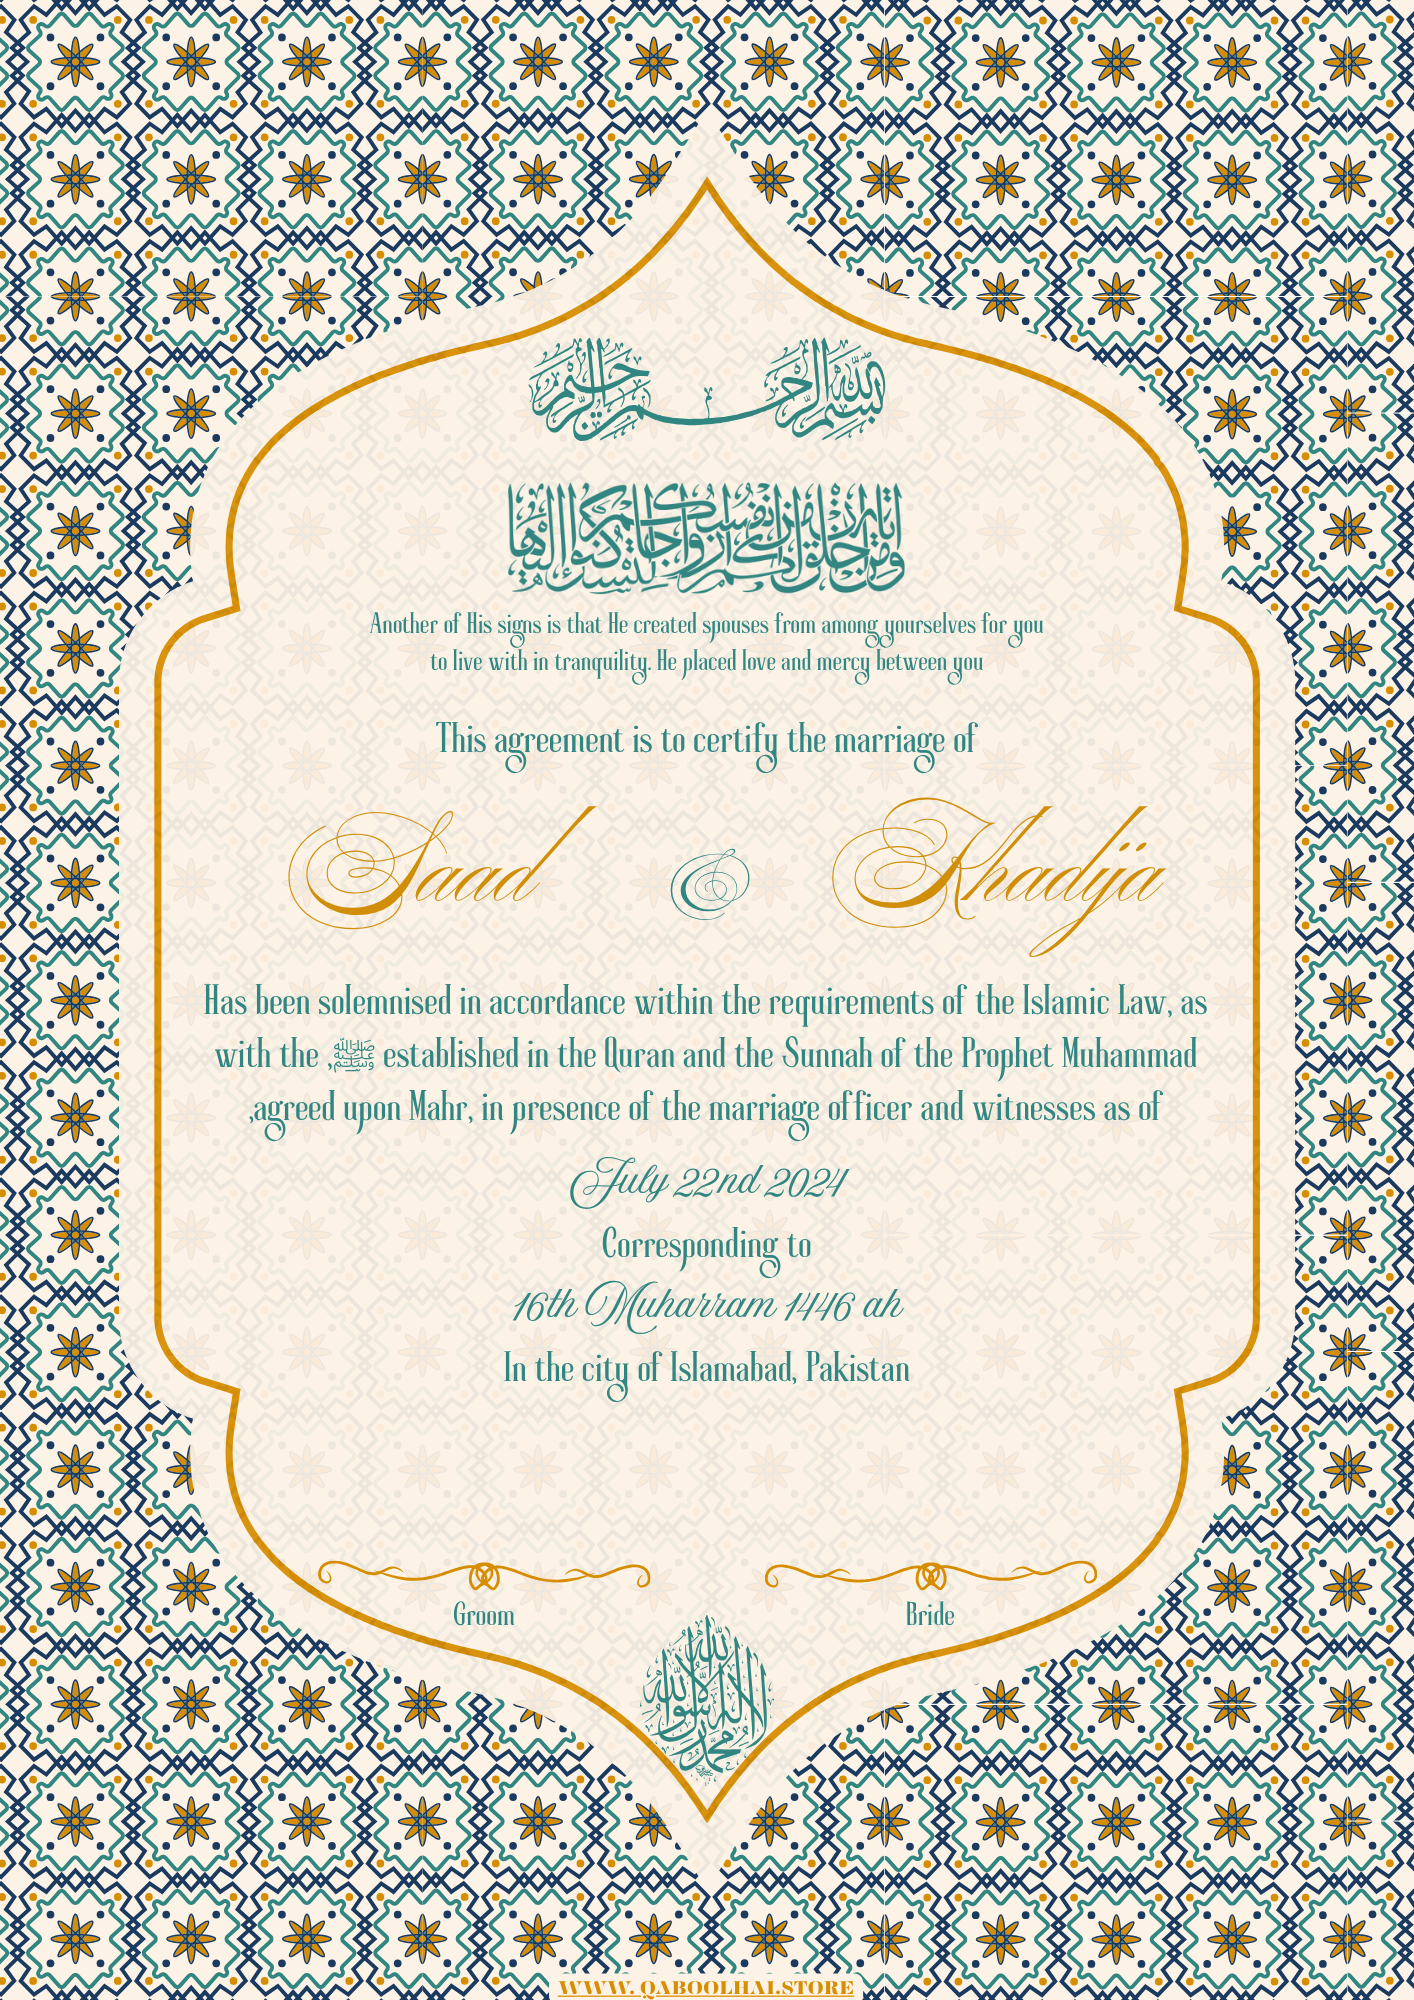 بسم الله الرحمن الرحيم
ومن آياته أن خلق لكم من أنفسكم أزواجا لتسكنوا إليها
Another of His signs is that He created spouses from among yourselves for you
to live with in tranquility. He placed love and mercy between you
This agreement is to certify the marriage of
Saad & Khadija
Has been solemnised in accordance within the requirements of the Islamic Law, as
with the ,ﷺ established in the Quran and the Sunnah of the Prophet Muhammad
,agreed upon Mahr, in presence of the marriage officer and witnesses as of
July 22nd 2024
Corresponding to
16th Muharram 1446 ah
In the city of Islamabad, Pakistan
Groom Bride
لا إله إلا الله محمد رسول الله
WWW. QABOOLHAI.STORE